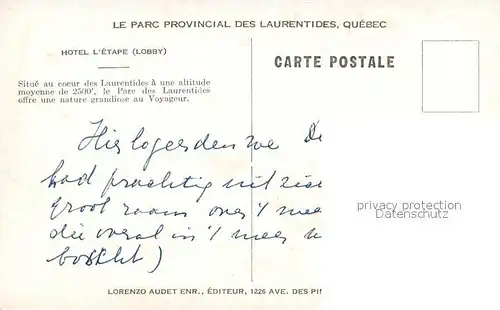 LE PARC PROVINCIAL DES LAURENTIDES, QUÉBEC
HOTEL L'ÉTAPE (LOBBY)
CARTE POSTALE
Situé au coeur des Laurentides à une altitude
moyenne de 2500', le Parc des Laurentides
offre une nature grandiose au Voyageur.
Hier logeerden we De
had prachtig uitzicht
groot raam over 't mee
die overal in 't meer
privacy protection
Datenschutz
LORENZO AUDET ENR., ÉDITEUR, 1226 AVE. DES PI